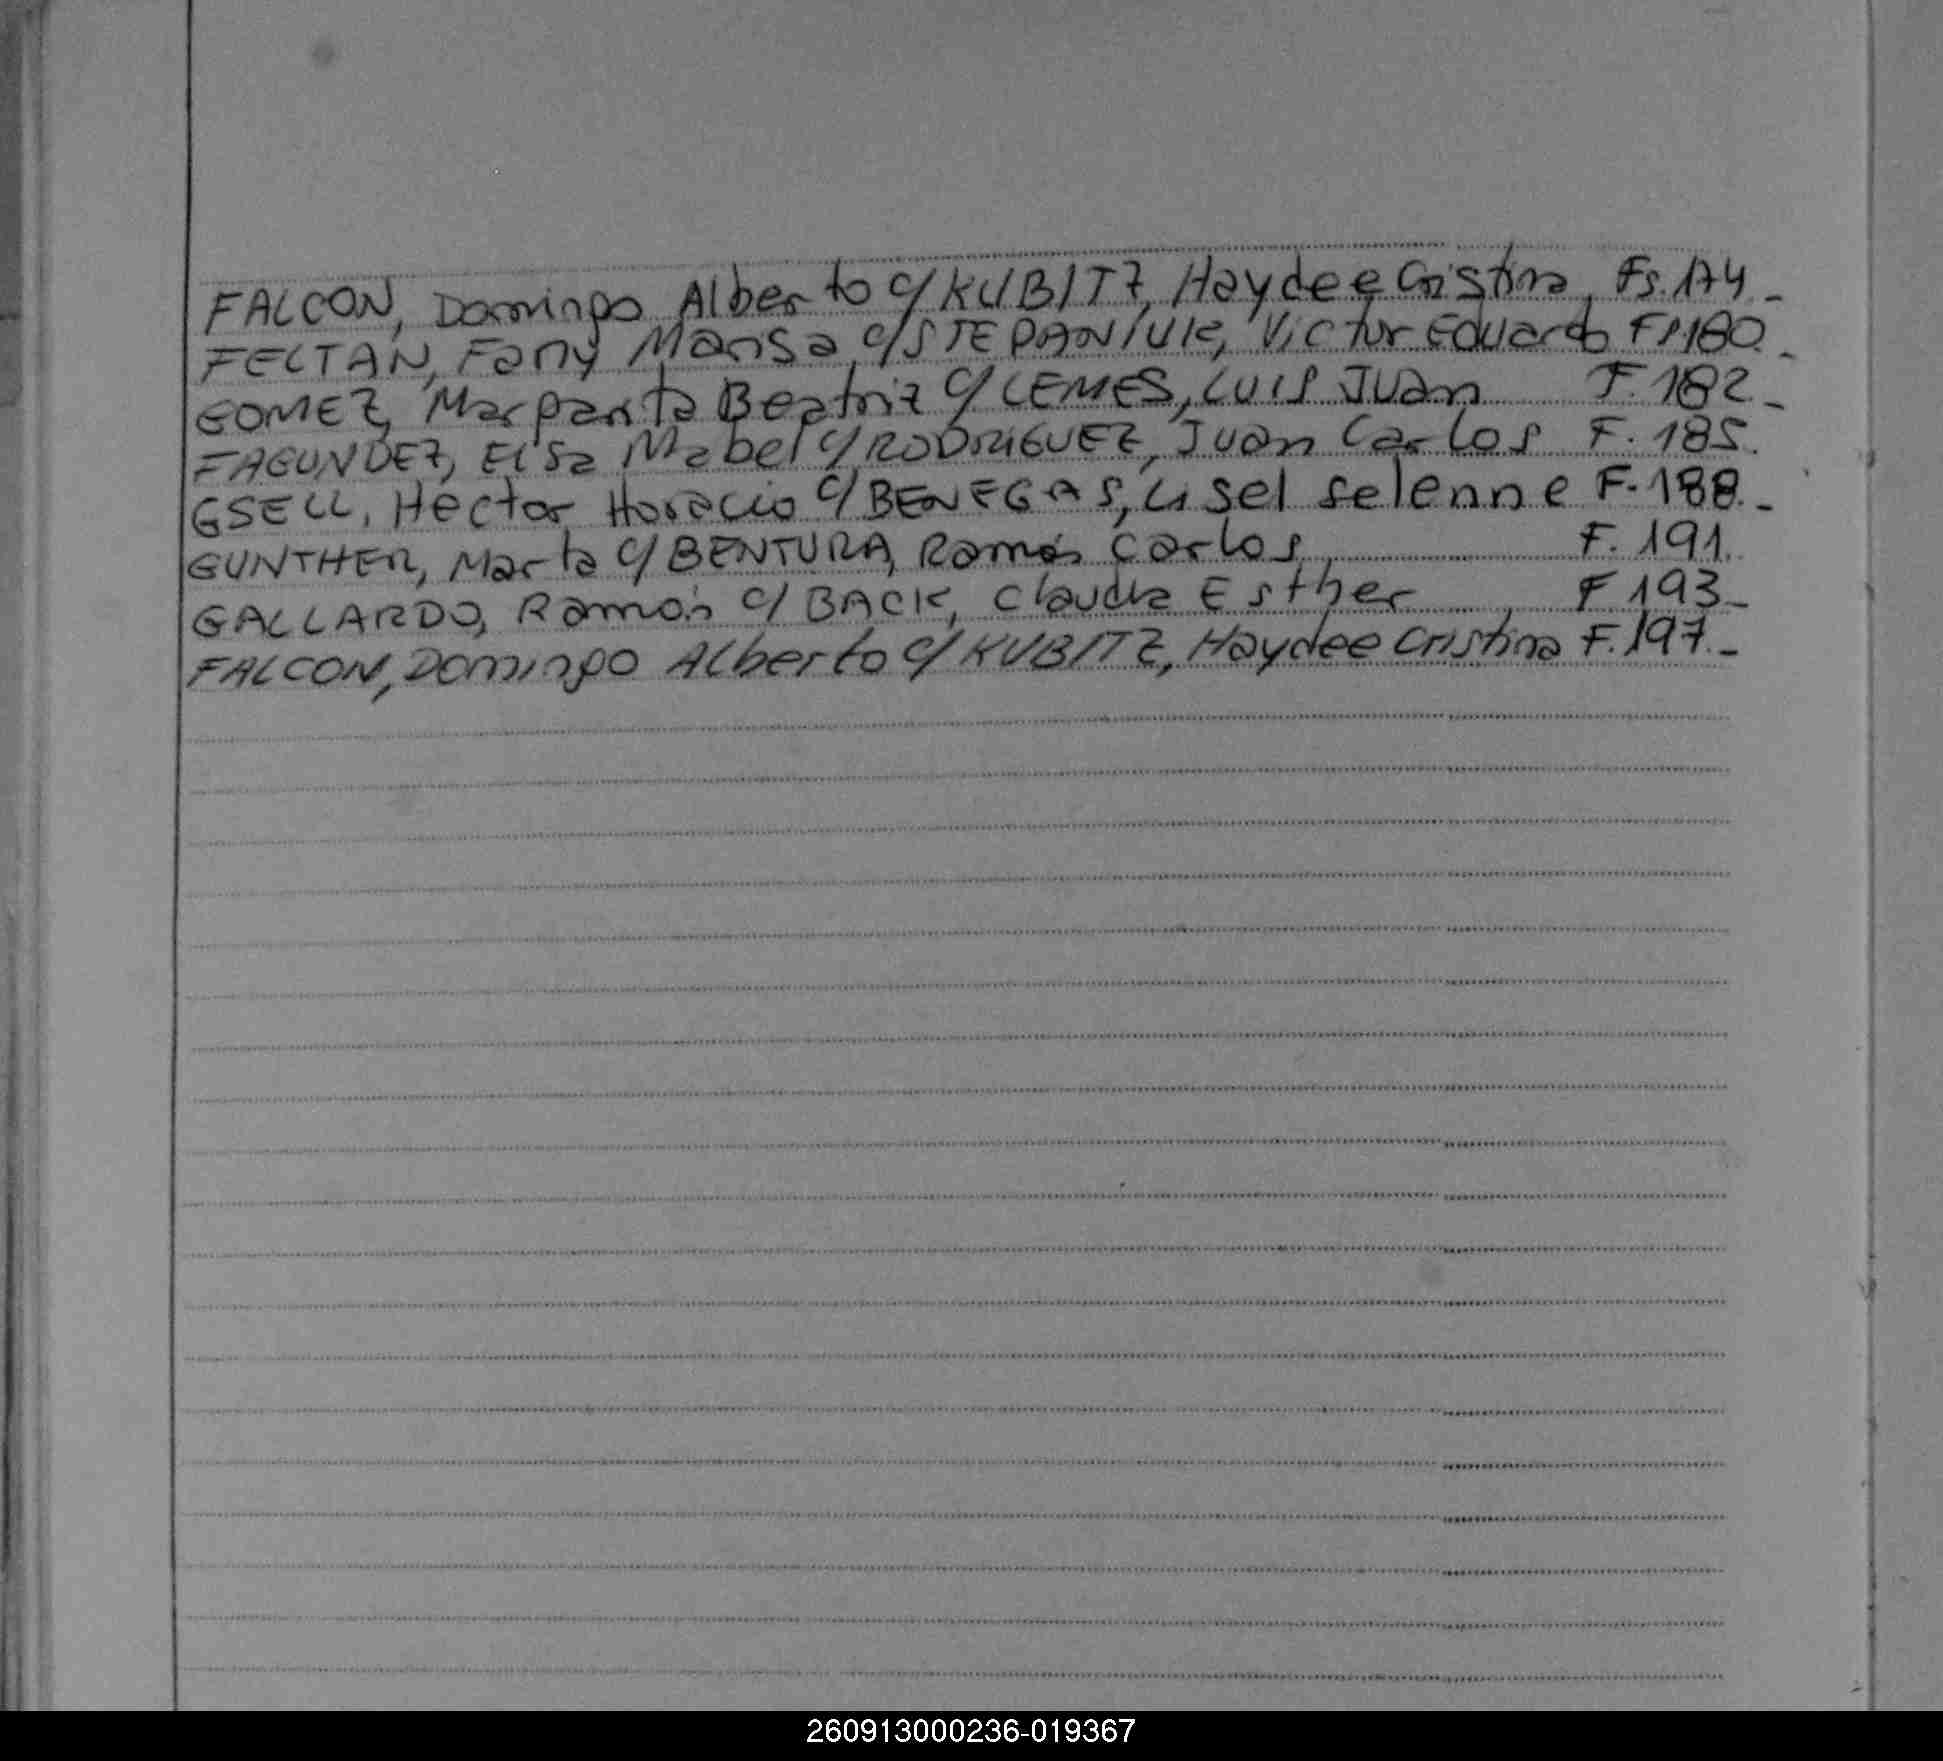 FALCON, Domingo Alberto c/ KUBITZ, Haydee Cristina, Fs. 174_
FELTAN, Fany Marisa c/ STEPANIUK, Victor Eduardo Fs 180_
GOMEZ, Margarita Beatriz c/ LEMES, LUIS JUan F. 182_
FAGUNDEZ, Elsa Mabel c/ RODRIGUEZ, Juan Carlos F. 185.
GSELL, Hector Horacio c/ BENEGAS, Lisel Selenne F. 188_
GUNTHER, Marta c/ BENTURA, Ramón Carlos, F. 191.
GALLARDO, Ramón c/ BACK, Claudia Esther F 193_
FALCON, Domingo Alberto c/ KUBITZ, Haydee Cristina F. 197_
260913000236-019367